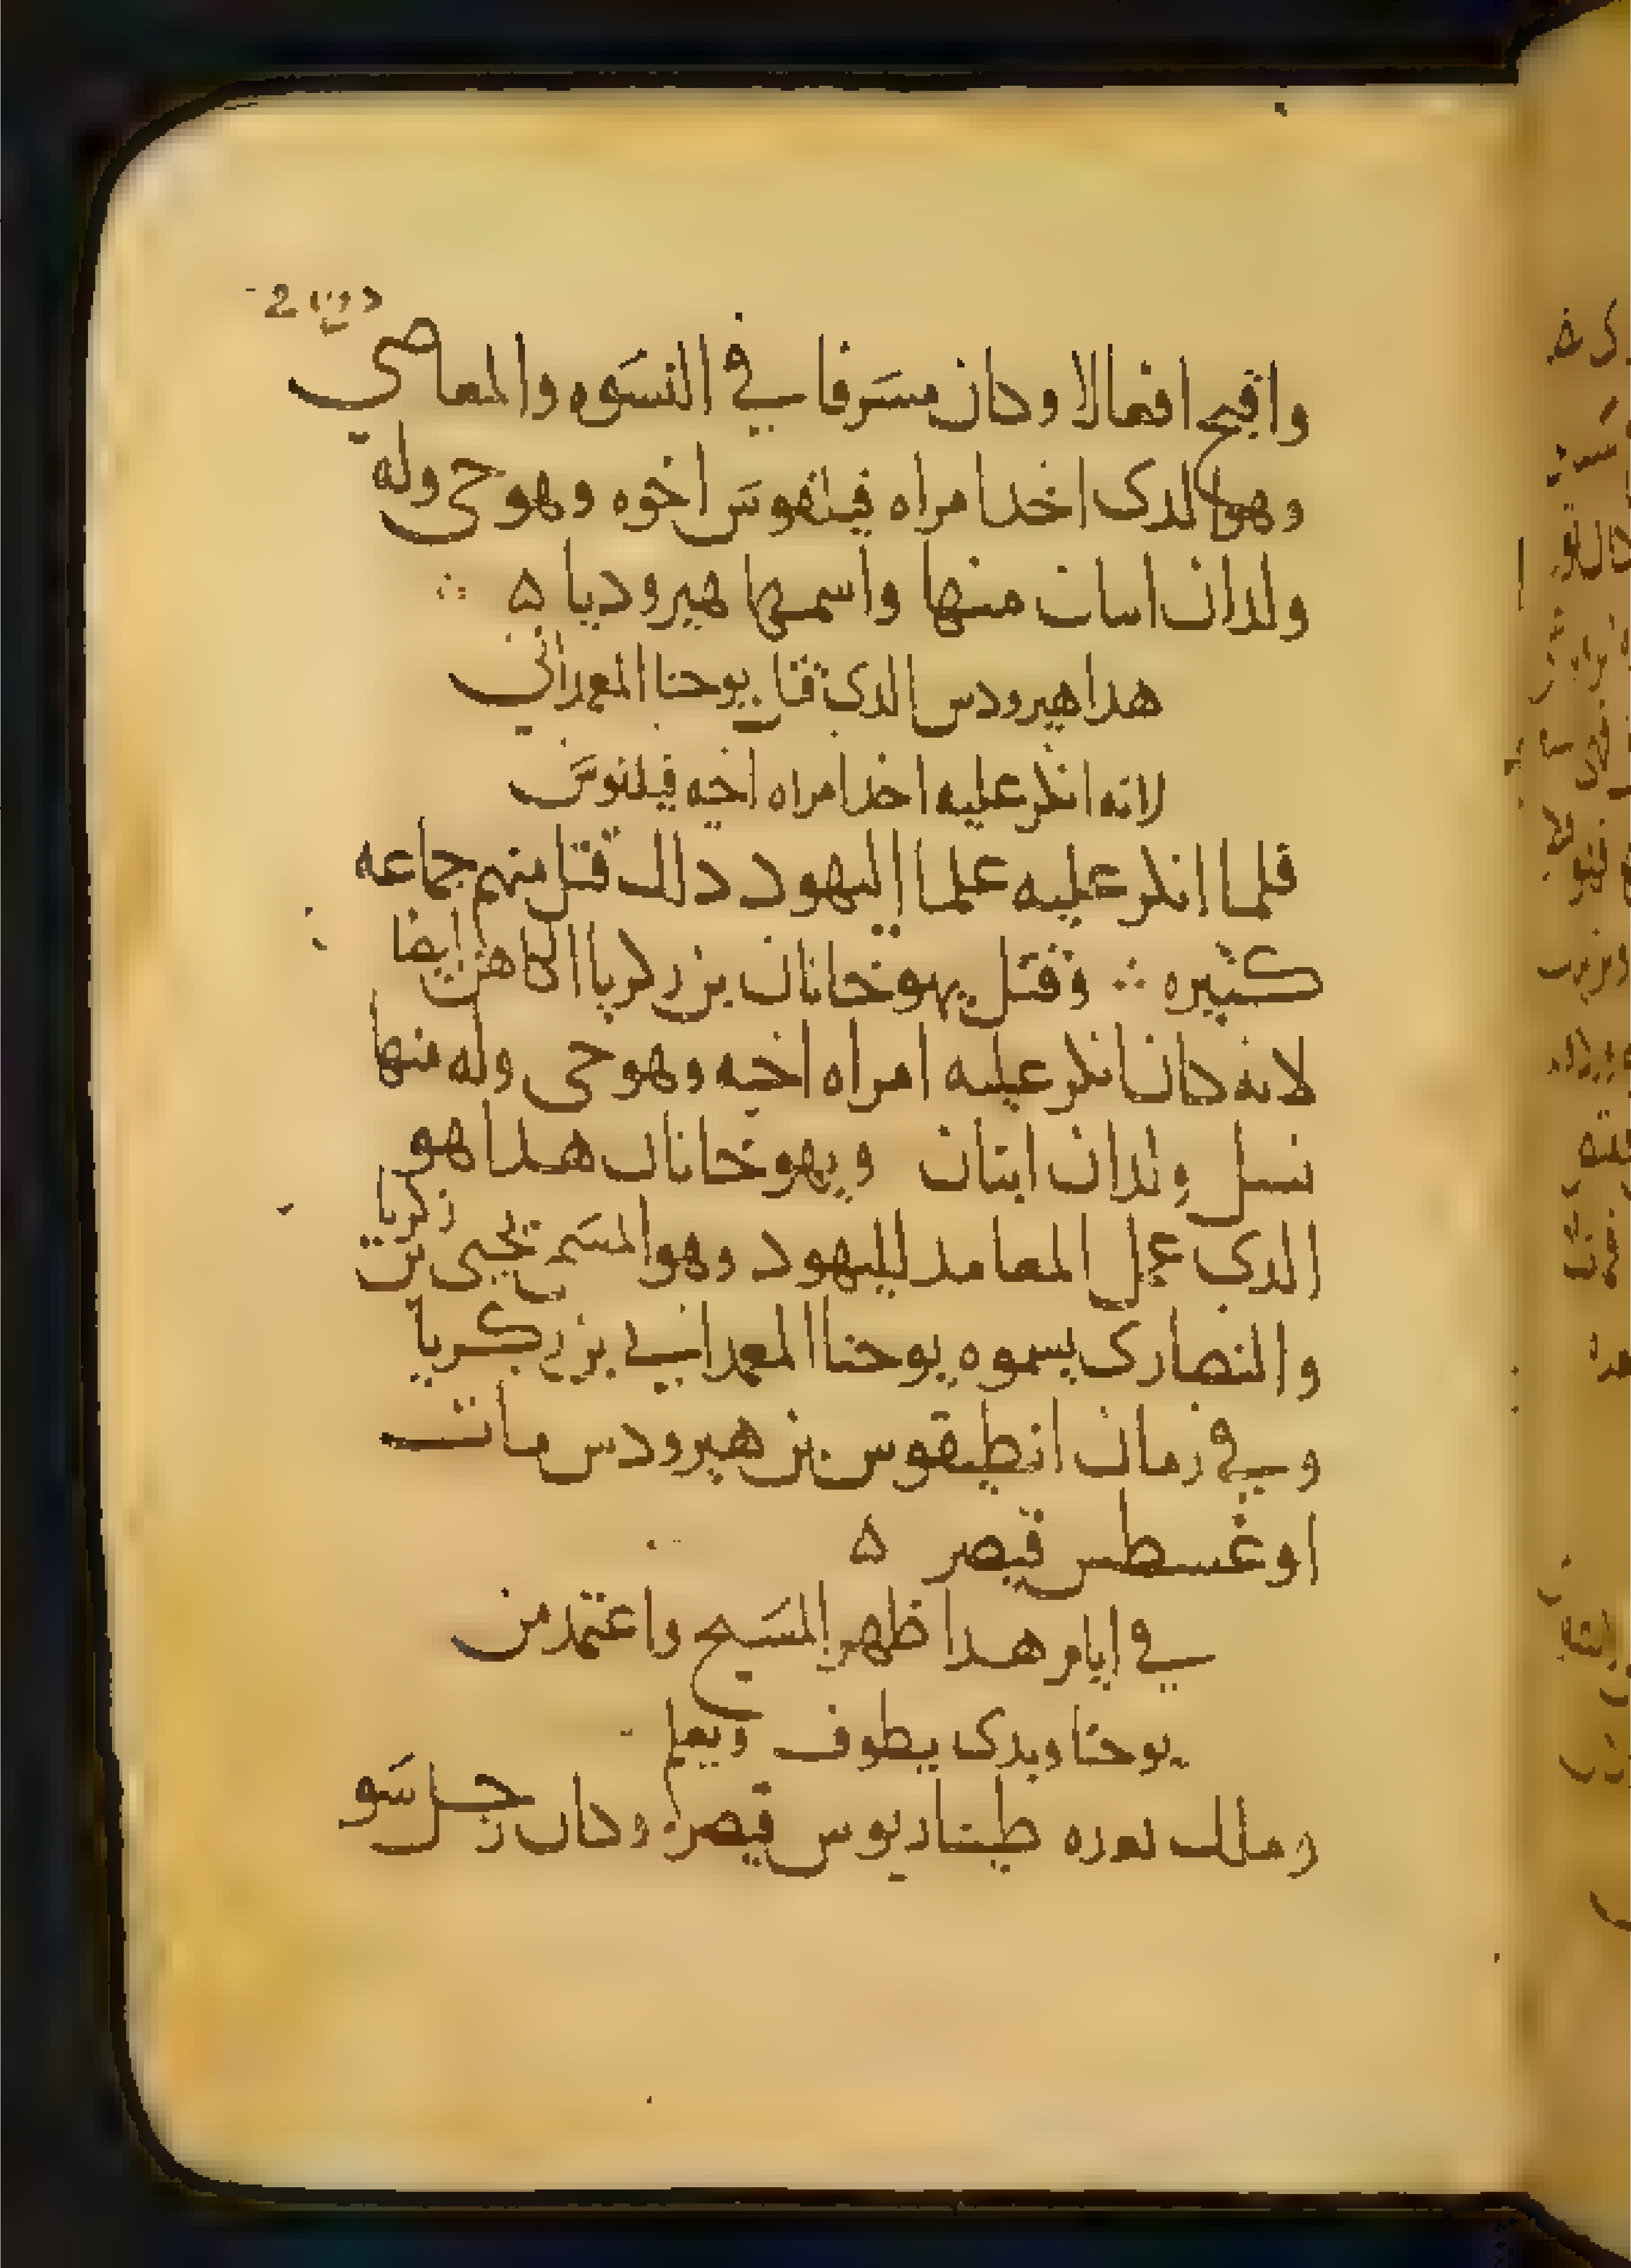 واقبح افعالا وكان مسرفا في النسوه والمعاصي
وهو الدى اخد امراه فيلقوس اخوه وهو حي وله
ولدان اسان منها واسمها هيروديا ۵
هدا هيرودس الدى قتل يوحنا المعمداني
لانه انكر عليه اخد امراه اخيه فيلفوس
فلما انكر عليه علما اليهود دلك قتل منهم جماعه
كثيره ∴ وقتل يهوخانان بن زكريا الكاهن ايضا
لانه كان انكر عليه امراه اخيه وهو حي وله منها
نسل ولدان ابنان ويهوخانان هدا هو
الدى عمل المعامد لليهود وهو المسمى يحيى بن زكريا
والنصارى يسموه يوحنا المعمداني بن زكريا
وفي زمان انطيقوس بن هيرودس مات
اوغسطس قيصر ۵
في ايام هدا ظهر المسيح واعتمد من
يوحنا وبدى يطوف ويعلم
وملك بعده طيباريوس قيصر وكان رجل سو